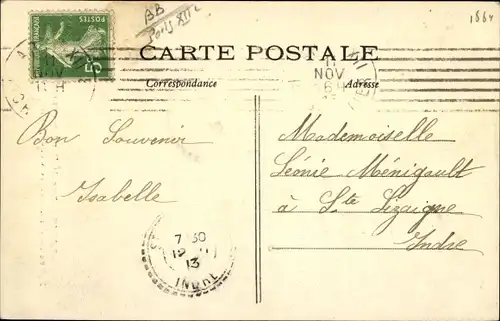 BB
Paris XII e
1864
POSTES
5c
CARTE POSTALE
11
NOV
Correspondance
Adresse
Bon Souvenir
Isabelle
Mademoiselle
Léonie Ménigault
à Ste Lizaigne
Indre
7 30
12 11
13
INDRE